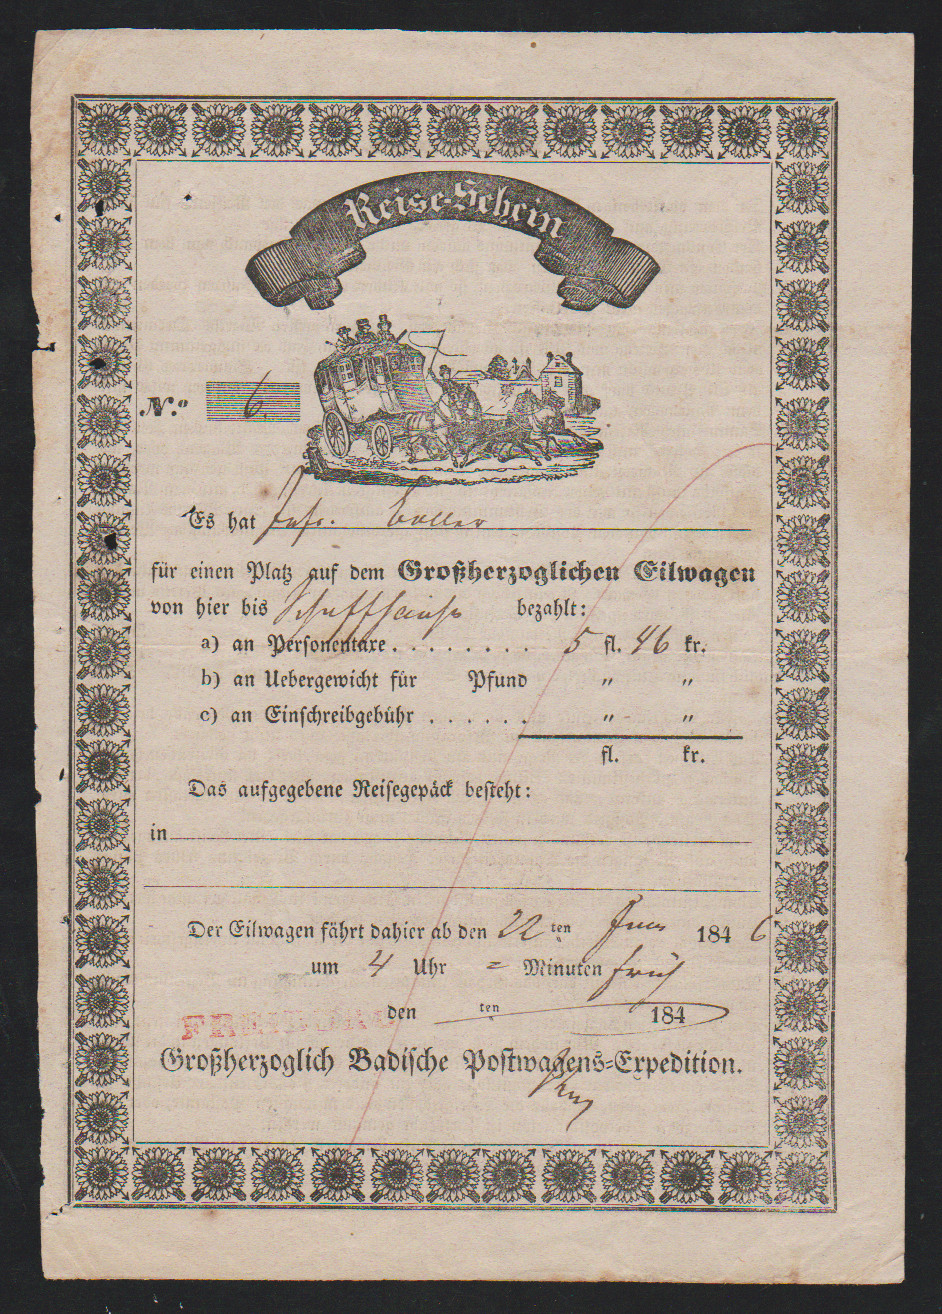 Reise-Schein
N.º 6.
Es hat
für einen Platz auf dem Großherzoglichen Eilwagen
von hier bis Schaffhausen bezahlt:
a) an Personentaxe . . . . . . . . 5 fl. 46 kr.
b) an Uebergewicht für Pfund " "
c) an Einschreibgebühr . . . . . . " "
fl. kr.
Das aufgegebene Reisegepäck besteht:
in
Der Eilwagen fährt dahier ab den 22 ten Juni 1846
um 4 Uhr = Minuten früh
den ten 184
FREIBURG
Großherzoglich Badische Postwagens-Expedition.